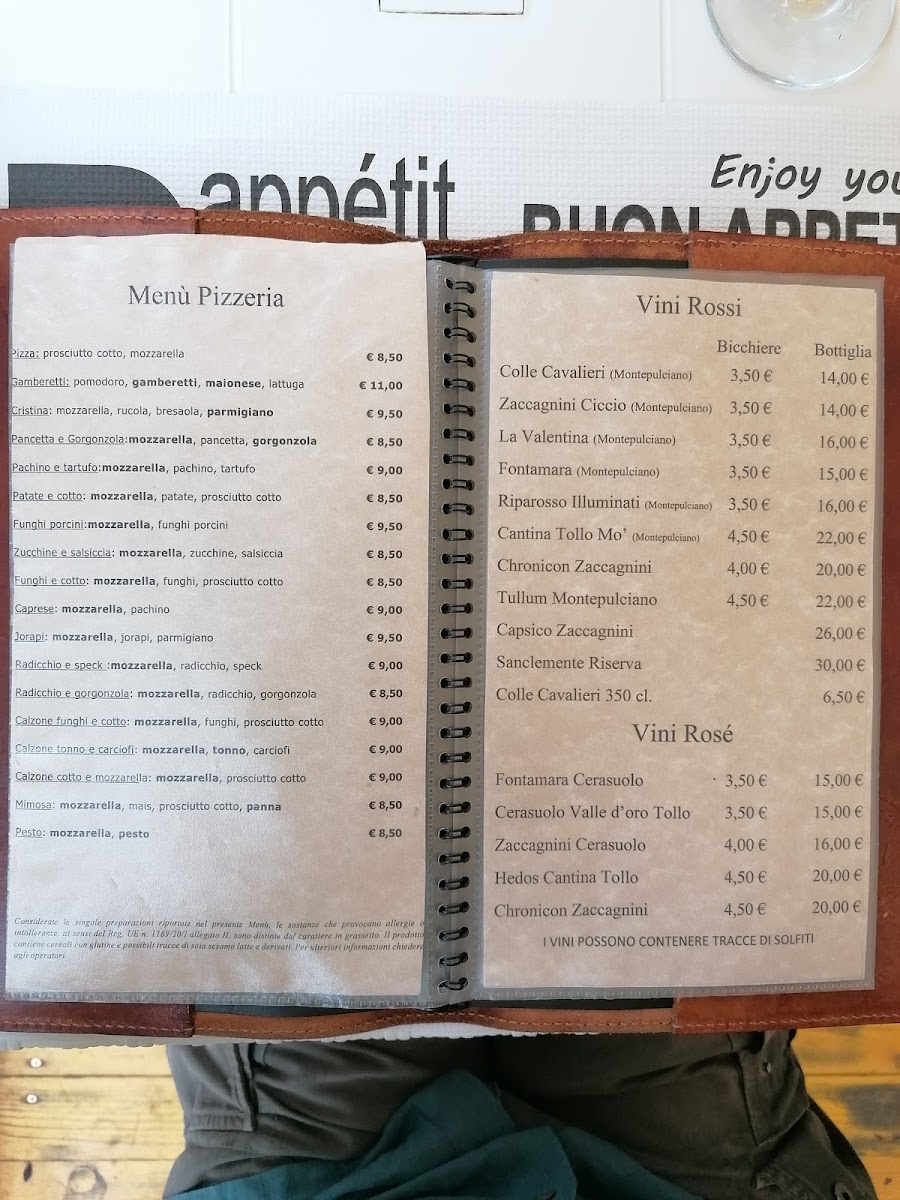 appétit
Enjoy you
BUON APPET
Menù Pizzeria
Pizza: prosciutto cotto, mozzarella € 8,50
Gamberetti: pomodoro, gamberetti, maionese, lattuga € 11,00
Cristina: mozzarella, rucola, bresaola, parmigiano € 9,50
Pancetta e Gorgonzola:mozzarella, pancetta, gorgonzola € 8,50
Pachino e tartufo:mozzarella, pachino, tartufo € 9,00
Patate e cotto: mozzarella, patate, prosciutto cotto € 8,50
Funghi porcini:mozzarella, funghi porcini € 9,50
Zucchine e salsiccia: mozzarella, zucchine, salsiccia € 8,50
Funghi e cotto: mozzarella, funghi, prosciutto cotto € 8,50
Caprese: mozzarella, pachino € 9,00
Jorapi: mozzarella, jorapi, parmigiano € 9,50
Radicchio e speck :mozzarella, radicchio, speck € 9,00
Radicchio e gorgonzola: mozzarella, radicchio, gorgonzola € 8,50
Calzone funghi e cotto: mozzarella, funghi, prosciutto cotto € 9,00
Calzone tonno e carciofi: mozzarella, tonno, carciofi € 9,00
Calzone cotto e mozzarella: mozzarella, prosciutto cotto € 9,00
Mimosa: mozzarella, mais, prosciutto cotto, panna € 8,50
Pesto: mozzarella, pesto € 8,50
Considerate le singole preparazioni riportate nel presente Menù, le sostanze che provocano allergie o
intolleranze, ai sensi del Reg. UE n. 1169/20/1 allegato II, sono distinte dal carattere in grassetto. Il prodotto
contiene cereali con glutine e possibili tracce di soia sesamo latte e derivati. Per ulteriori informazioni chiedere
agli operatori.
Vini Rossi
Bicchiere Bottiglia
Colle Cavalieri (Montepulciano) 3,50 € 14,00 €
Zaccagnini Ciccio (Montepulciano) 3,50 € 14,00 €
La Valentina (Montepulciano) 3,50 € 16,00 €
Fontamara (Montepulciano) 3,50 € 15,00 €
Riparosso Illuminati (Montepulciano) 3,50 € 16,00 €
Cantina Tollo Mo' (Montepulciano) 4,50 € 22,00 €
Chronicon Zaccagnini 4,00 € 20,00 €
Tullum Montepulciano 4,50 € 22,00 €
Capsico Zaccagnini 26,00 €
Sanclemente Riserva 30,00 €
Colle Cavalieri 350 cl. 6,50 €
Vini Rosé
Fontamara Cerasuolo 3,50 € 15,00 €
Cerasuolo Valle d'oro Tollo 3,50 € 15,00 €
Zaccagnini Cerasuolo 4,00 € 16,00 €
Hedos Cantina Tollo 4,50 € 20,00 €
Chronicon Zaccagnini 4,50 € 20,00 €
I VINI POSSONO CONTENERE TRACCE DI SOLFITI